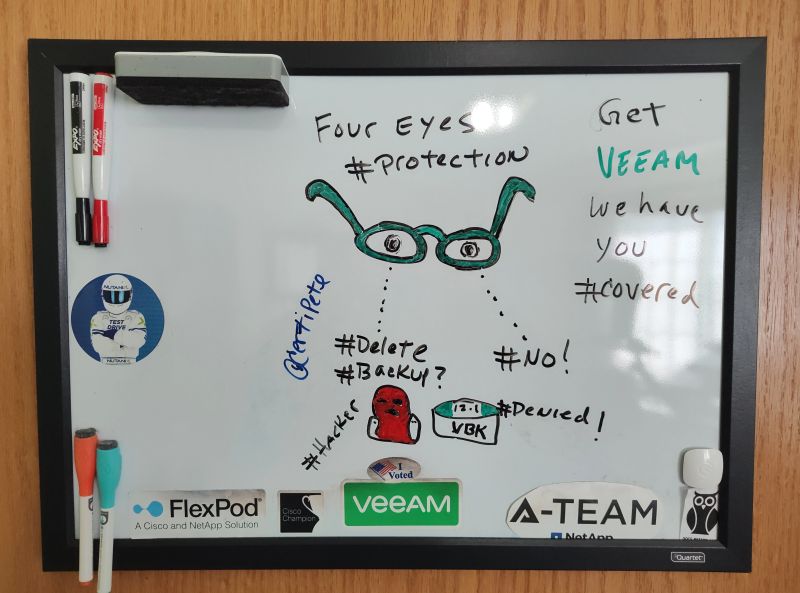 Four Eyes
#Protection
Get
VEEAM
We have
you
#covered
@CertiPete
#Delete
#Backup?
#No!
#Hacker
12.1
VBK
#Denied!
EXPO
EXPO
NUTANIX
TEST
DRIVE
NUTANIX
I
Voted
FlexPod
A Cisco and NetApp Solution
Cisco
Champion
veeAM
A-TEAM
NetApp
Quartet